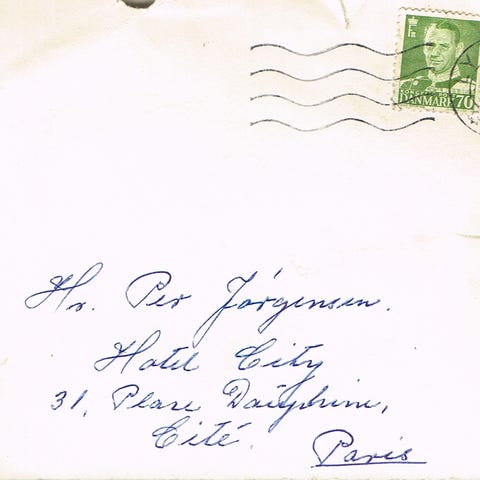 DANMARK 70
Hr. Per Jørgensen.
Hotel City
31, Place Dauphine,
Cité.
Paris